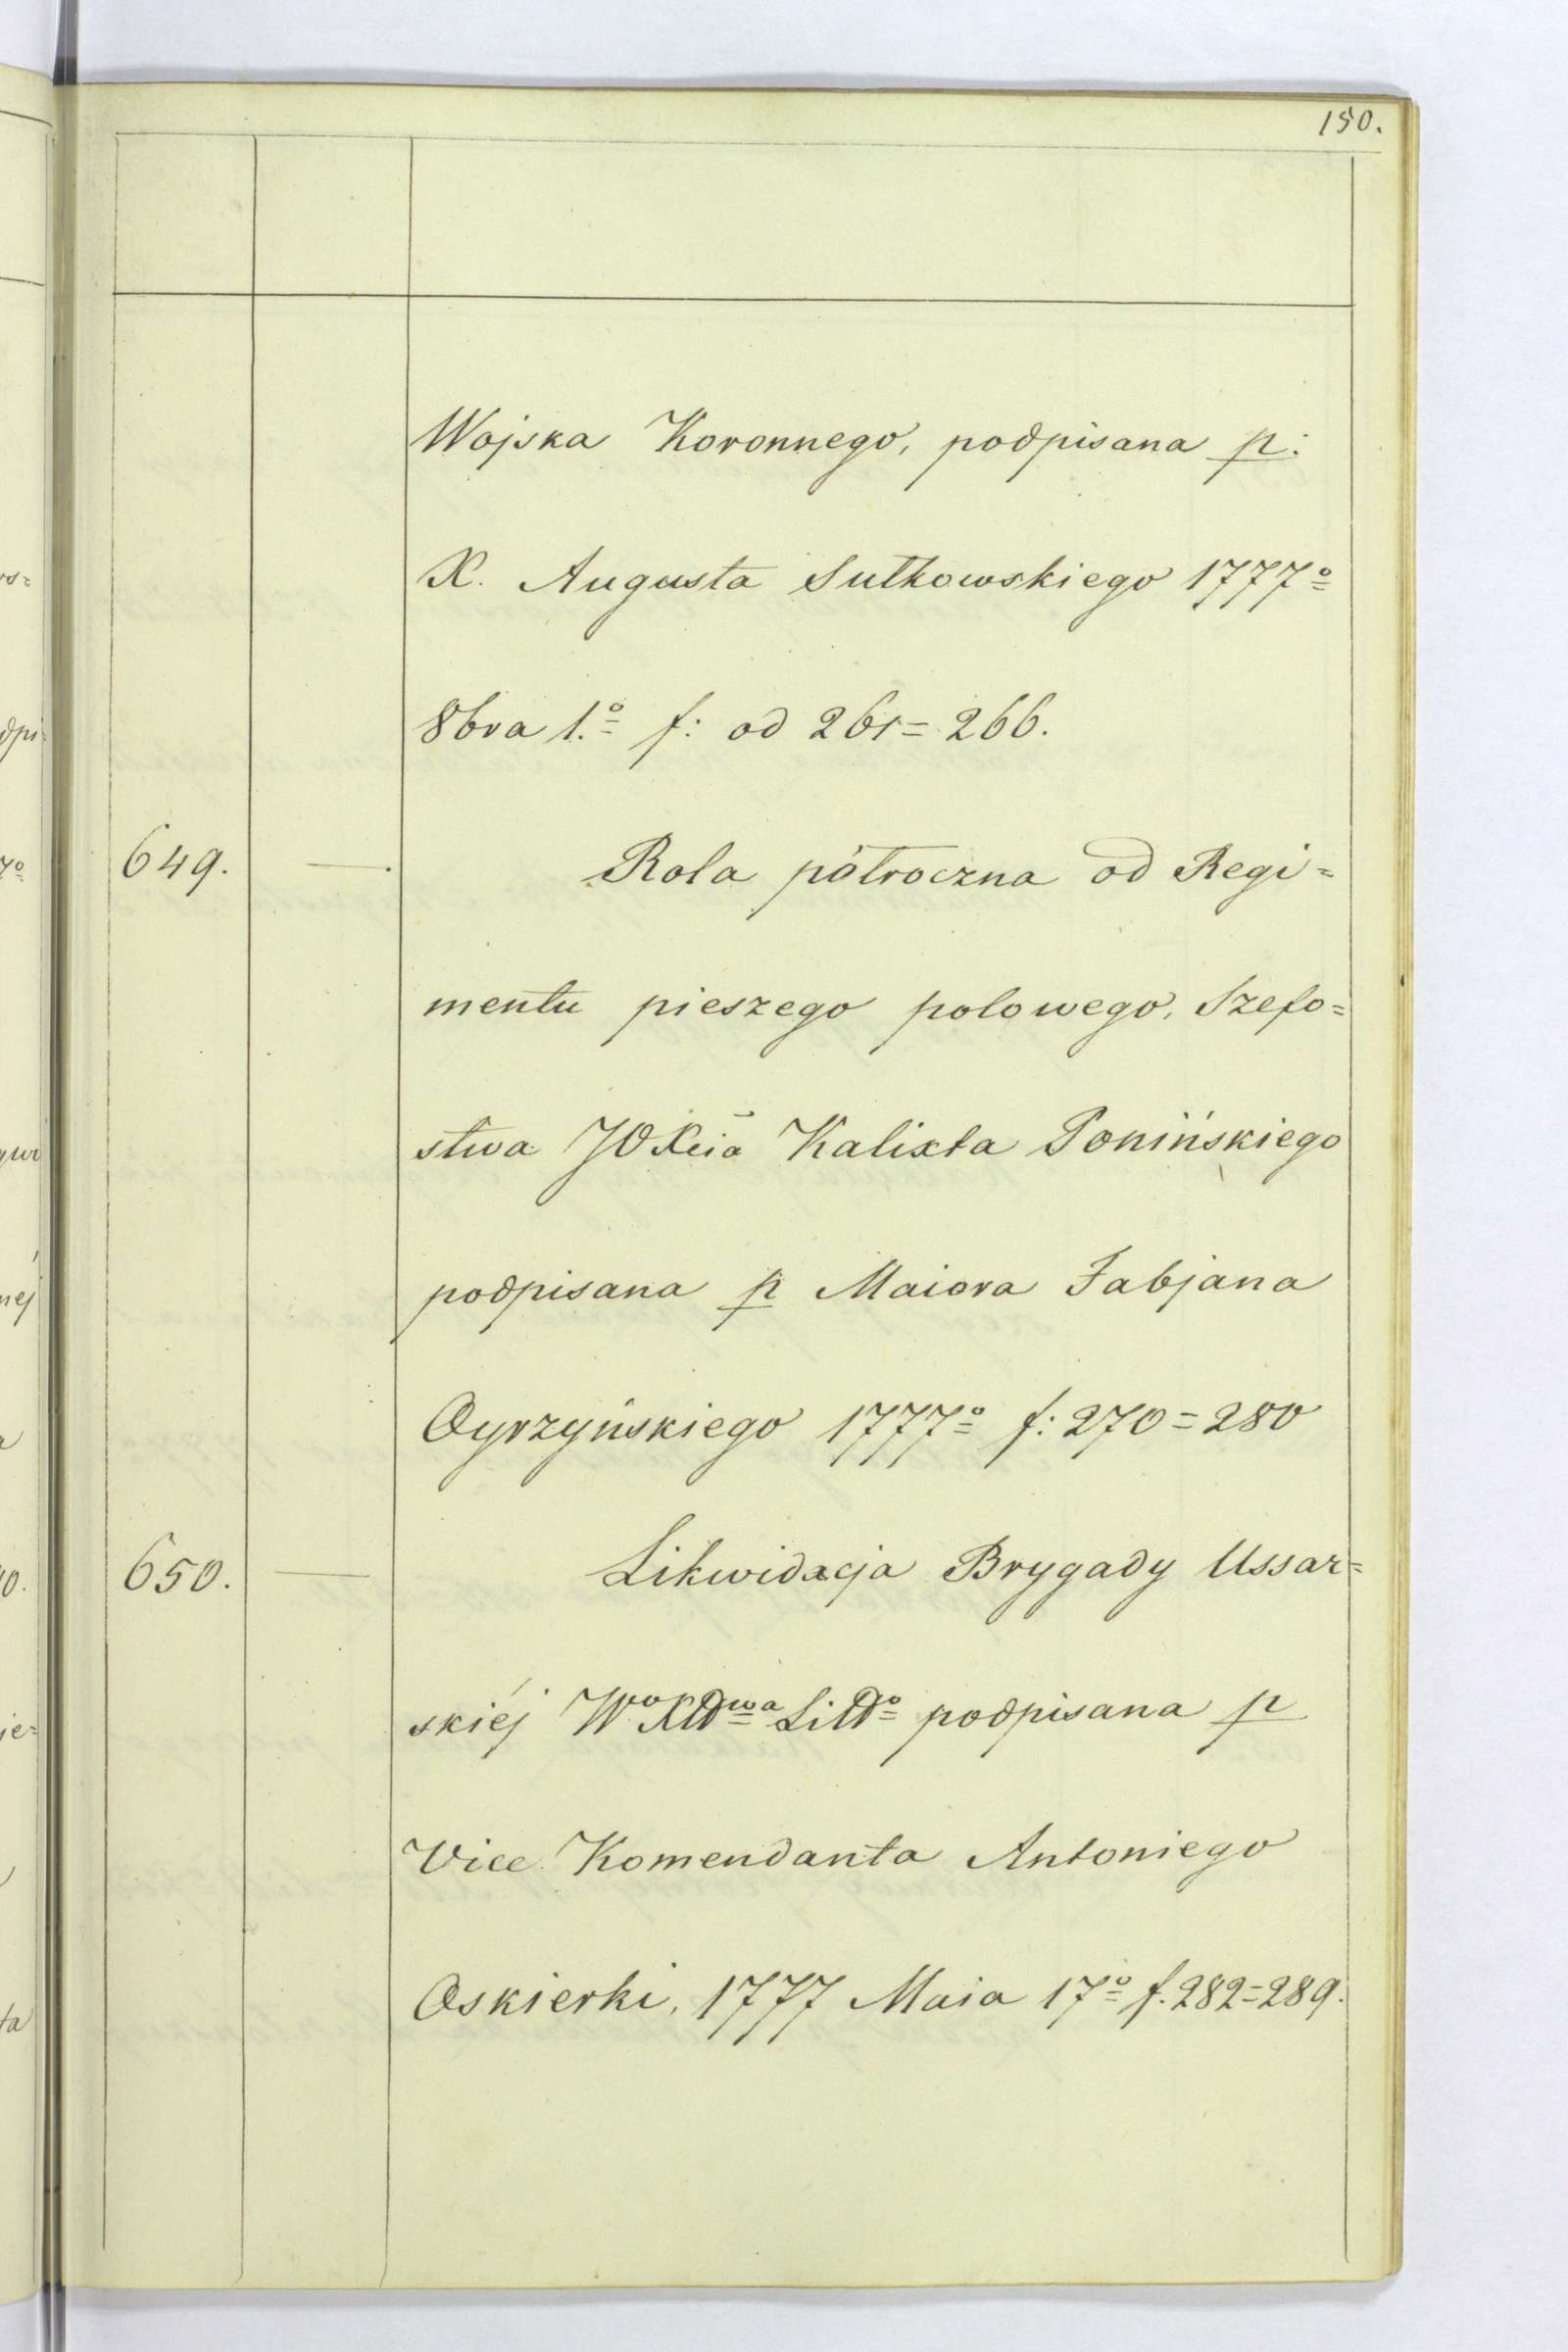 150.
Wojska Koronnego, podpisana p:
X. Augusta Sułkowskiego 1777º
8bra 1.º f: od 261=266.
649. — Rola półroczna od Regi=
mentu pieszego polowego, Szefo=
stwa JOXcia Kalixta Ponińskiego
podpisana p Maiora Fabjana
Oyrzyńskiego 1777º f: 270=280
650. — Likwidacja Brygady Ussar=
skiéj podpisana p
Vice Komendanta Antoniego
Oskierki, 1777 Maia 17º f. 282=289.